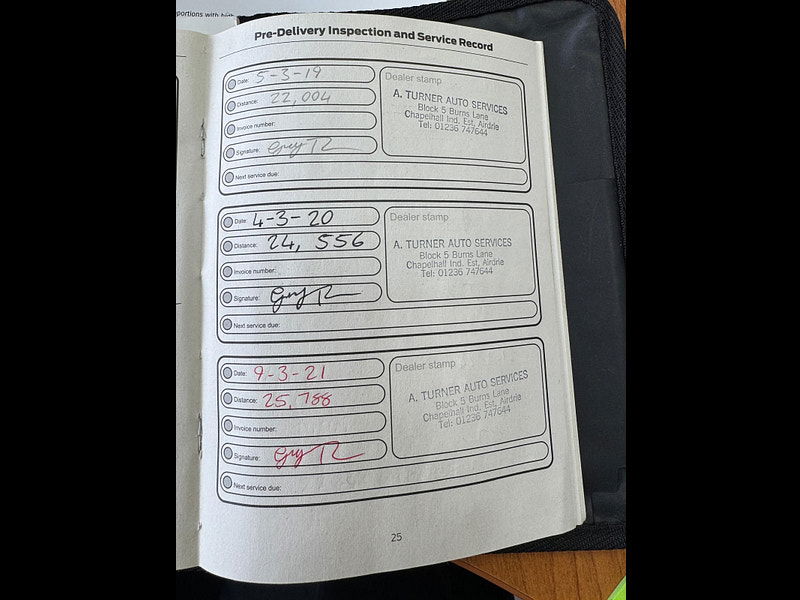 portions with high
Pre-Delivery Inspection and Service Record
Date: 5-3-19
Distance: 22,004
Invoice number:
Signature:
Next service due:
Dealer stamp
A. TURNER AUTO SERVICES
Block 5 Burns Lane
Chapelhall Ind. Est, Airdrie
Tel: 01236 747644
Date: 4-3-20
Distance: 24, 556
Invoice number:
Signature:
Next service due:
Dealer stamp
A. TURNER AUTO SERVICES
Block 5 Burns Lane
Chapelhall Ind. Est, Airdrie
Tel: 01236 747644
Date: 9-3-21
Distance: 25,788
Invoice number:
Signature:
Next service due:
Dealer stamp
A. TURNER AUTO SERVICES
Block 5 Burns Lane
Chapelhall Ind. Est, Airdrie
Tel: 01236 747644
25